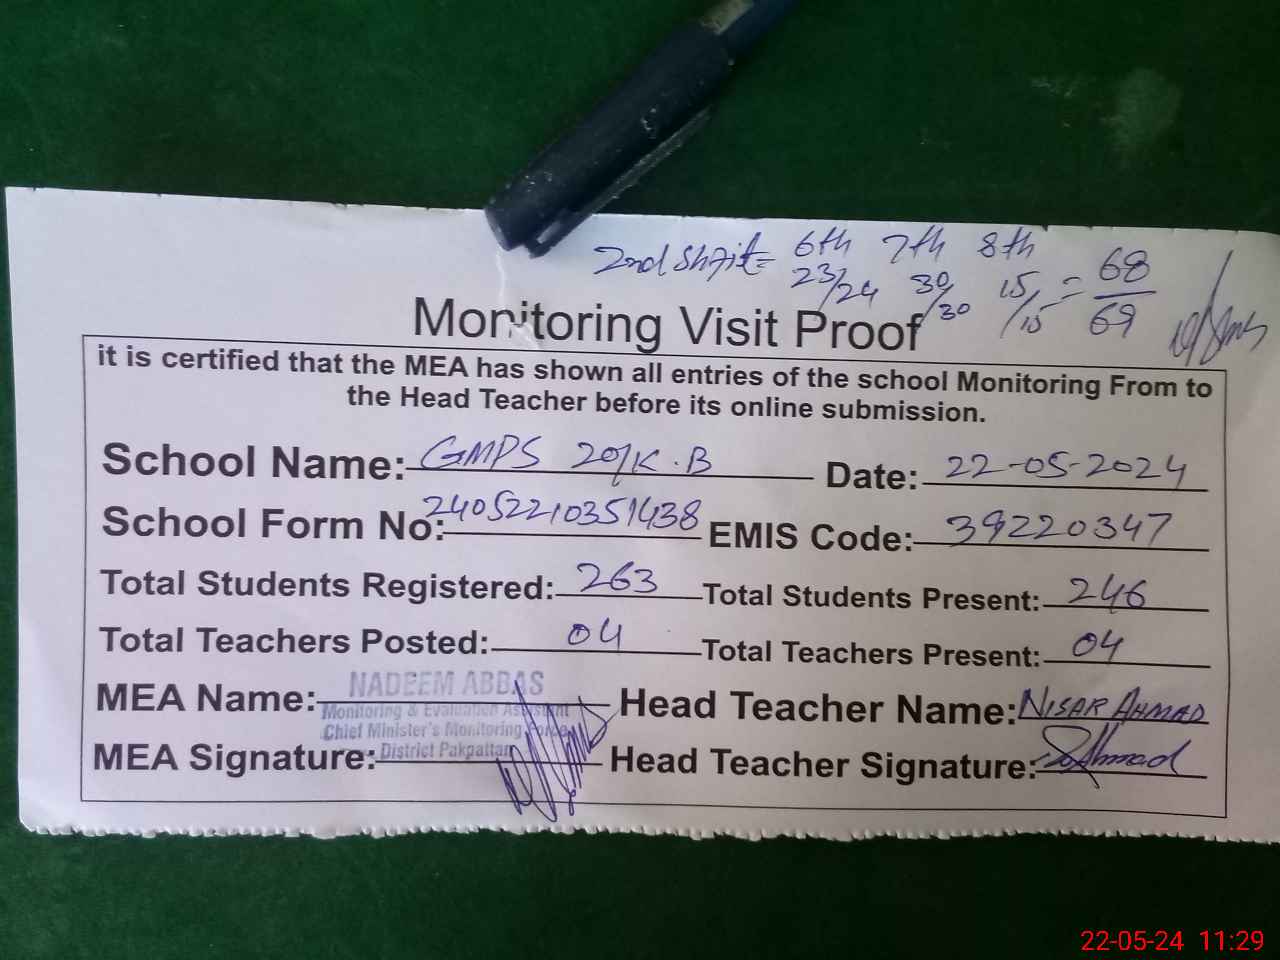 2nd Shift= 6th 7th 8th
23/24 30/30 15/15 = 68/69
Monitoring Visit Proof
it is certified that the MEA has shown all entries of the school Monitoring From to
the Head Teacher before its online submission.
School Name: GMPS 20/K.B Date: 22-05-2024
School Form No: 24052210351438 EMIS Code: 39220347
Total Students Registered: 263 Total Students Present: 246
Total Teachers Posted: 04 Total Teachers Present: 04
MEA Name: NADEEM ABBAS Head Teacher Name: NISAR AHMAD
Monitoring & Evaluation Assistant
Chief Minister's Monitoring Force
District Pakpattan
MEA Signature: Head Teacher Signature: Ahmad
22-05-24 11:29